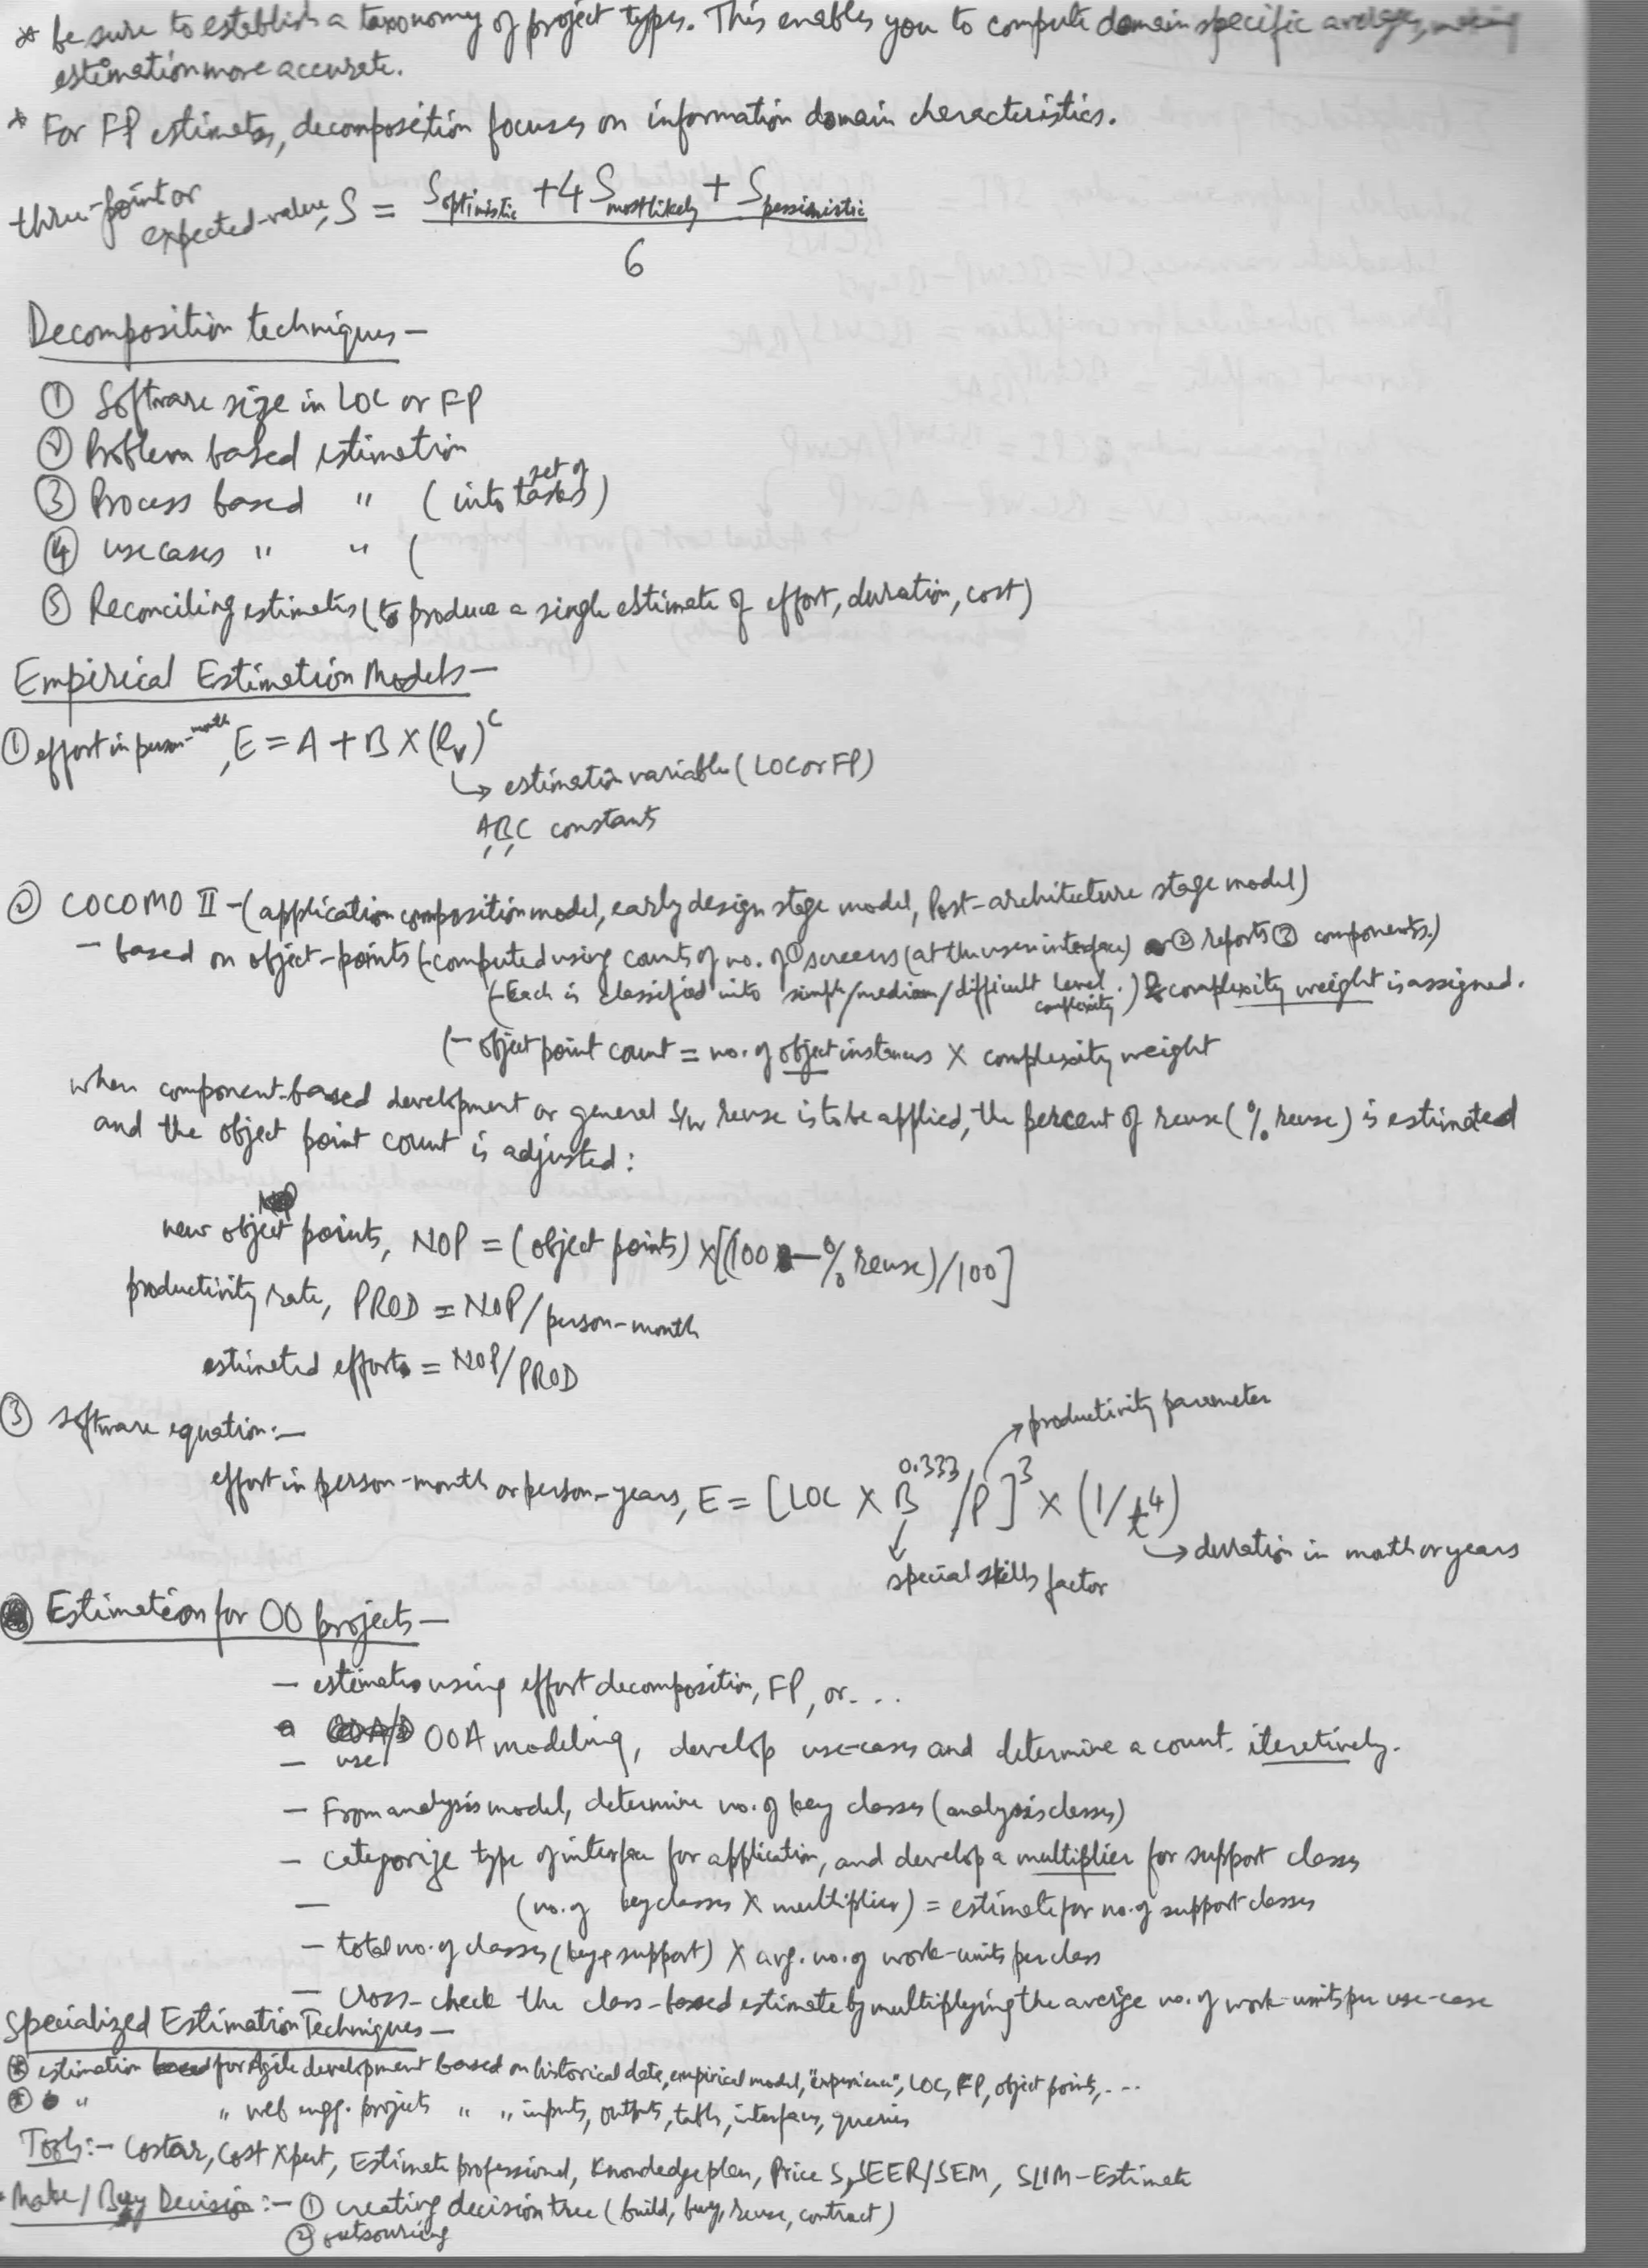 * be sure to establish a taxonomy of project types. This enables you to compute domain specific averages, making
estimation more accurate.
* For FP estimates, decomposition focuses on information domain characteristics.
three-point or
expected-value, S = (S optimistic + 4 S most likely + S pessimistic) / 6
Decomposition techniques —
① Software size in LOC or FP
② Problem based estimation
③ Process based " (into set of tasks)
④ use cases " " (
⑤ Reconciling estimates (to produce a single estimate of effort, duration, cost)
Empirical Estimation Models —
① effort in person-month, E = A + B X (ev)^C
↳ estimation variable (LOC or FP)
A, B, C constants
② COCOMO II - (application composition model, early design stage model, Post-architecture stage model)
— based on object-points (- computed using counts of no. of ① screens (at the user interface) ② reports ③ components.)
(- Each is classified into simple/medium/difficult level complexity.) & complexity weight is assigned.
(- object point count = no. of object instances X complexity weight
when component-based development or general S/W reuse is to be applied, the percent of reuse (% reuse) is estimated
and the object point count is adjusted:
new object points, NOP = (object points) X [(100 - % reuse)/100]
productivity rate, PROD = NOP/person-month
estimated effort = NOP/PROD
③ software equation :—
→ productivity parameter
effort in person-month or person-years, E = [LOC X B^0.333/P]^3 X (1/t^4)
→ duration in month or years
special skills factor
Estimation for OO projects —
— estimates using effort decomposition, FP, or...
— use OOA modeling, develop use-cases and determine a count. iteretively.
— From analysis model, determine no. of key classes (analysis classes)
— categorize type of interface for application, and develop a multiplier for support classes
— (no. of key classes X multiplier) = estimate for no. of support classes
— total no. of classes (key + support) X avg. no. of work-units per class
— cross-check the class-based estimate by multiplying the average no. of work-units per use-case
Specialized Estimation Techniques —
* estimation for Agile development based on historical data, empirical model, "experience", LOC, FP, object points,...
* " " web engg. projects " " inputs, outputs, tables, interfaces, queries
Tools :- Costar, Cost Xpert, Estimate professional, Knowledge plan, Price S, SEER/SEM, SLIM-Estimate
Make/Buy Decision :- ① creating decision tree (build, buy, reuse, contract)
② outsourcing